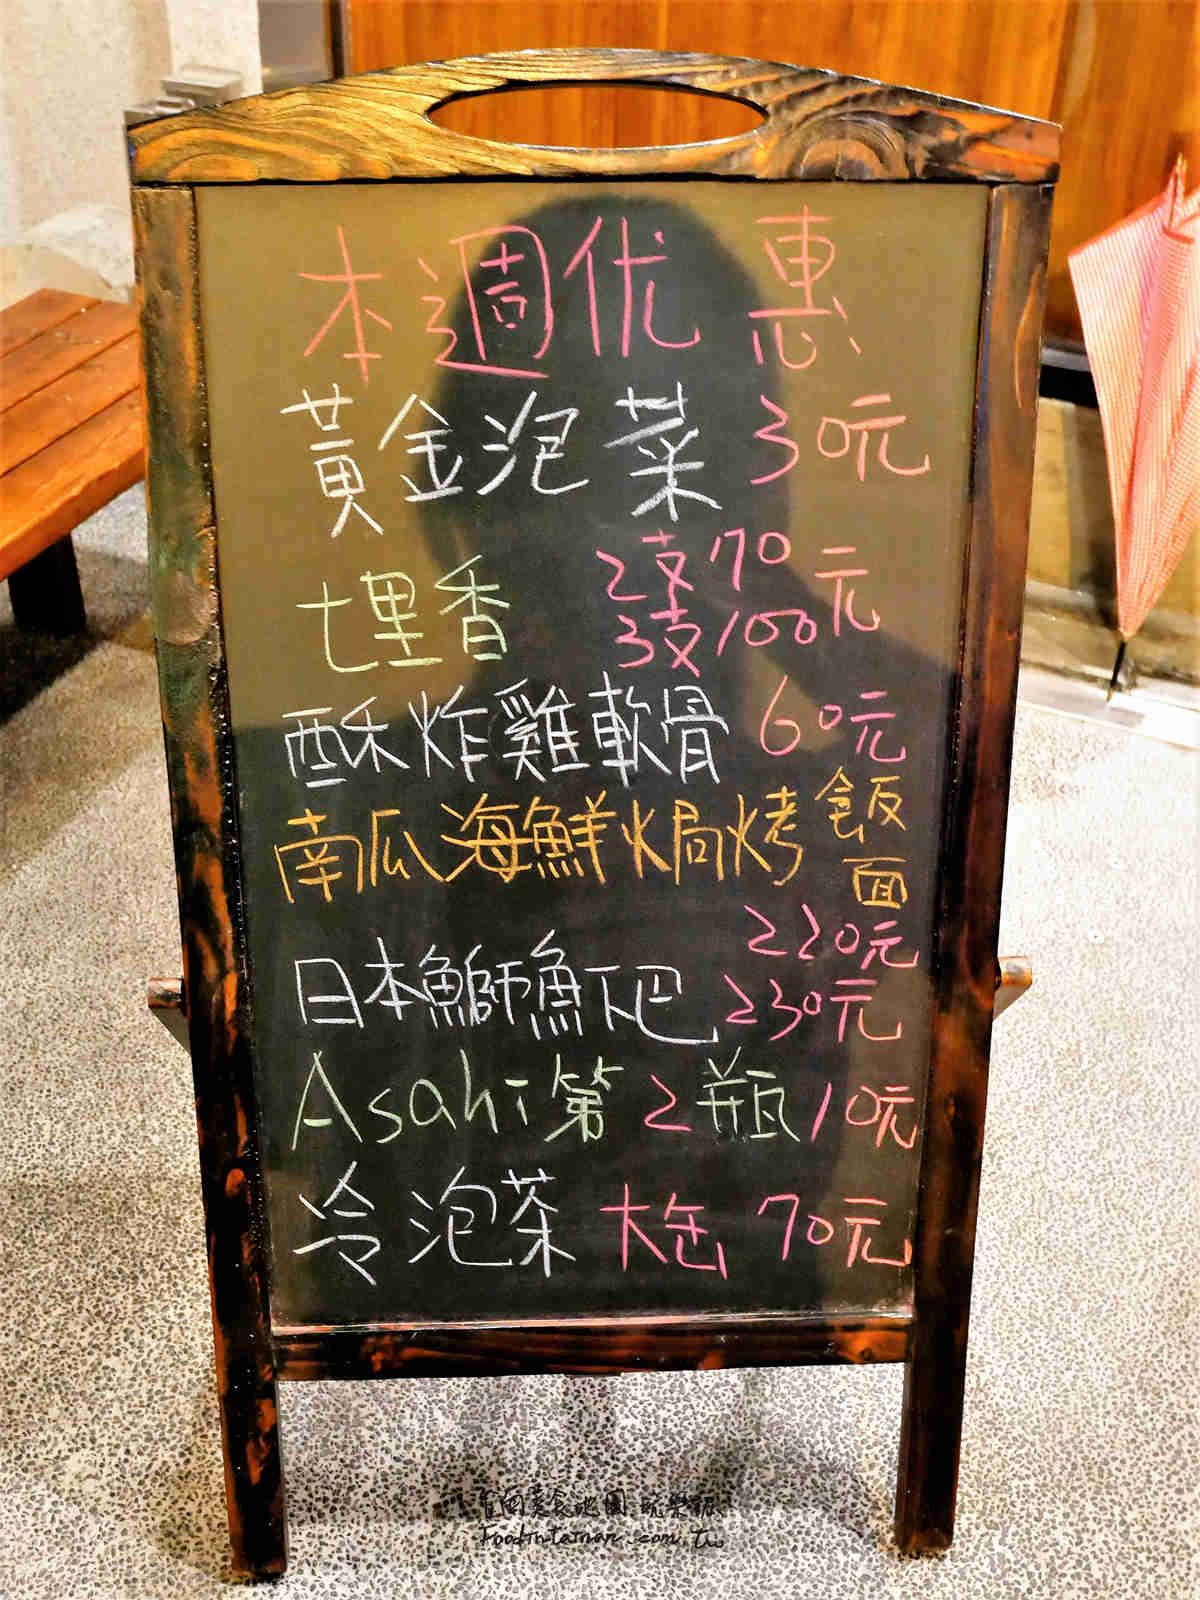 本週优惠
黃金泡菜 30元
七里香 2支70元
3支100
酥炸雞軟骨 60元
南瓜海鮮焗烤飯
面
220元
日本鰤魚下巴 230元
Asahi第2瓶10元
冷泡茶 大缶 70元
食尚美食地圖 玩樂
Foodintainan.com.tw